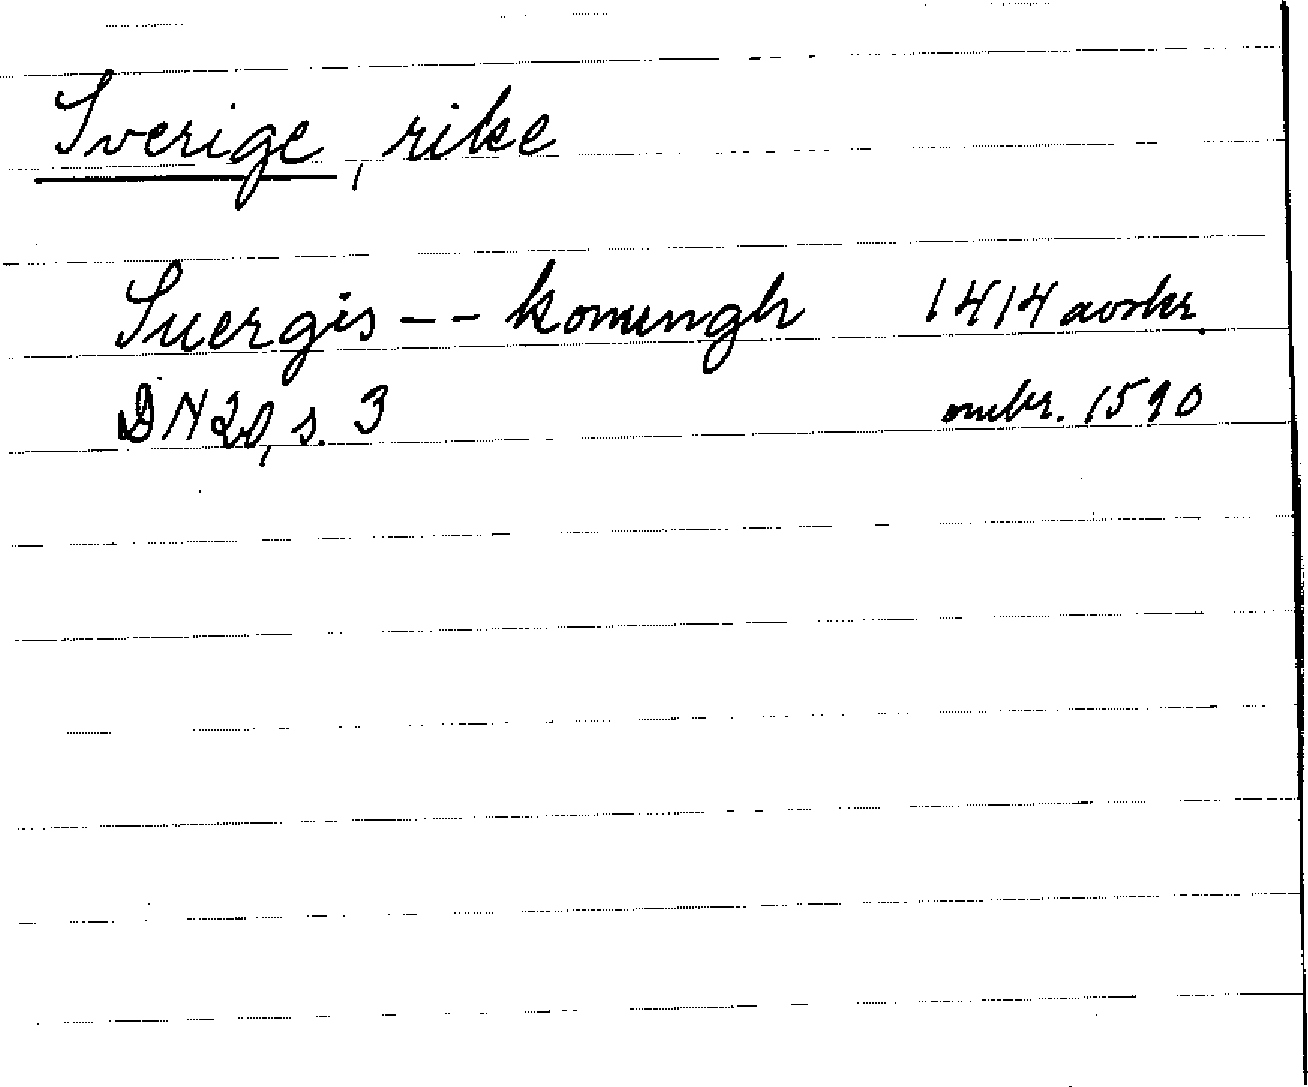 Sverige, rike
Suergis -- konungh 1414 avskr.
DN 20, s. 3 omkr. 1590